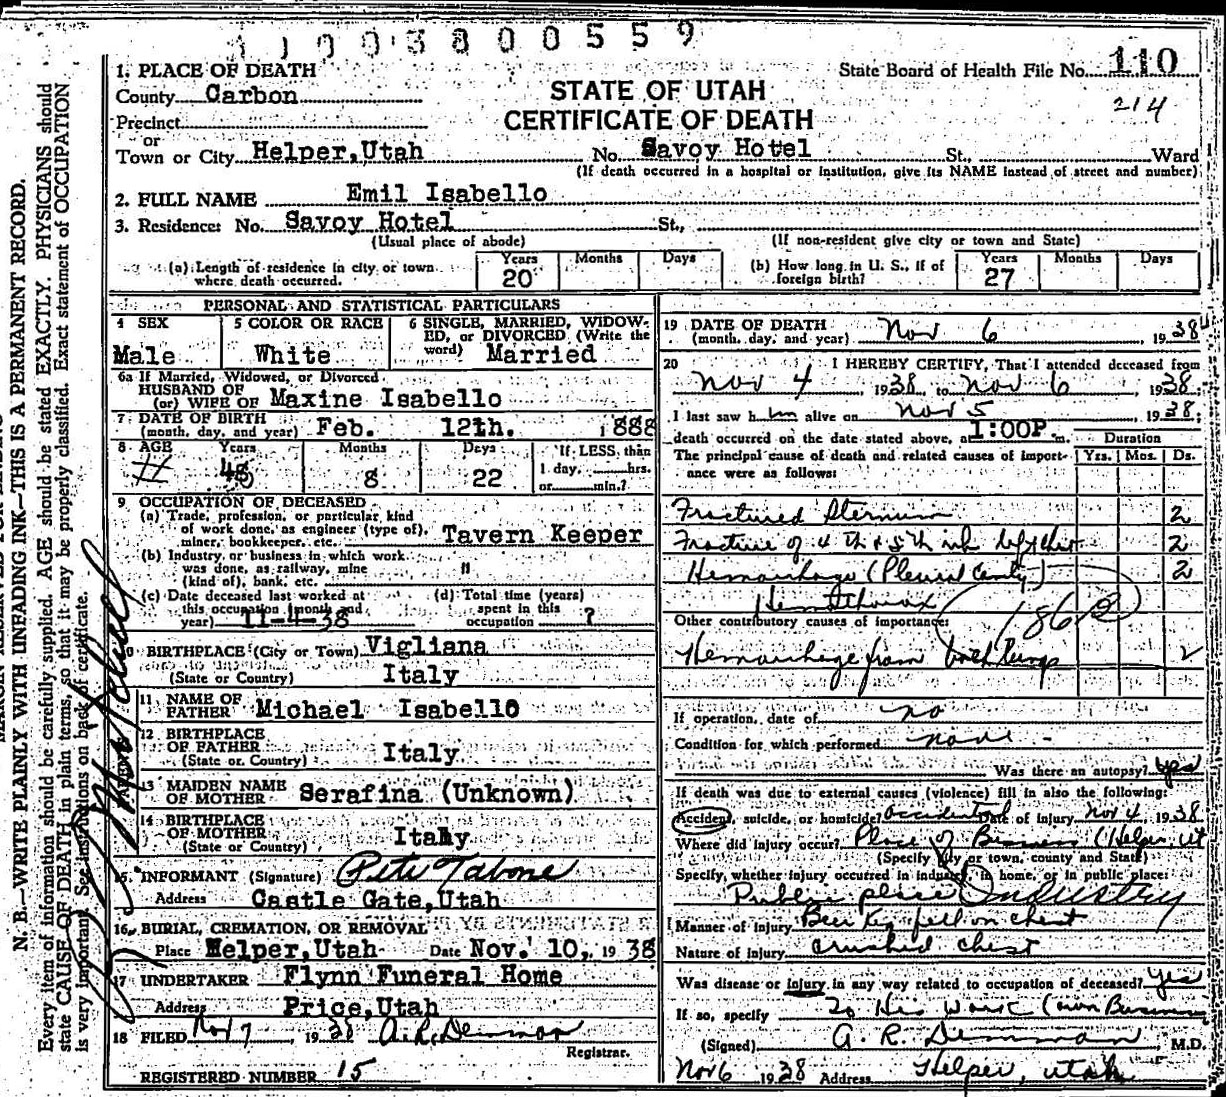 1 1 0 0 3 8 0 0 5 5 9
State Board of Health File No. 110
214
STATE OF UTAH
CERTIFICATE OF DEATH
1. PLACE OF DEATH
County Carbon
Precinct
or
Town or City Helper, Utah No. Savoy Hotel St., Ward
(If death occurred in a hospital or institution, give its NAME instead of street and number)
2. FULL NAME Emil Isabello
3. Residence: No. Savoy Hotel St.,
(Usual place of abode) (If non-resident give city or town and State)
(a) Length of residence in city or town where death occurred. Years 20 Months Days
(b) How long in U. S., if of foreign birth? Years 27 Months Days
PERSONAL AND STATISTICAL PARTICULARS
4 SEX Male
5 COLOR OR RACE White
6 SINGLE, MARRIED, WIDOWED, or DIVORCED (Write the word) Married
6a If Married, Widowed, or Divorced
HUSBAND OF
(or) WIFE OF Maxine Isabello
7 DATE OF BIRTH
(month, day, and year) Feb. 12th. 1888
8 AGE Years Months 8 Days 22 If LESS than
1 day, hrs.
or min.?
9 OCCUPATION OF DECEASED
(a) Trade, profession, or particular kind
of work done, as engineer (type of),
miner, bookkeeper, etc. Tavern Keeper
(b) Industry or business in which work
was done, as railway, mine
(kind of), bank, etc. "
(c) Date deceased last worked at
this occupation (month and
year) 11-4-38
(d) Total time (years)
spent in this
occupation ?
10 BIRTHPLACE (City or Town) Vigliana
(State or Country) Italy
11 NAME OF
FATHER Michael Isabello
12 BIRTHPLACE
OF FATHER
(State or Country) Italy
13 MAIDEN NAME
OF MOTHER Serafina (Unknown)
14 BIRTHPLACE
OF MOTHER
(State or Country) Italy
15 INFORMANT (Signature) Pete Tabone
Address Castle Gate, Utah
16 BURIAL, CREMATION, OR REMOVAL
Place Helper, Utah Date Nov. 10, 1938
17 UNDERTAKER Flynn Funeral Home
Address Price, Utah
18 FILED Nov 7 1938 A. R. Demman
Registrar.
REGISTERED NUMBER 15
19 DATE OF DEATH
(month, day, and year) Nov 6, 1938
20 I HEREBY CERTIFY, That I attended deceased from
Nov 4, 1938 to Nov 6, 1938.
I last saw h im alive on Nov 5 1938;
death occurred on the date stated above, at 1:00P. m. Duration
The principal cause of death and related causes of importance were as follows: Yrs. Mos. Ds.
Fractured Sternum 2
Fracture of 4th & 5th rib left chest 2
Hemorrhage (Pleural Cavity) 2
Hemothorax
Other contributory causes of importance:
186
Hemorrhage from both lungs 2
If operation, date of no
Condition for which performed none
Was there an autopsy? yes
If death was due to external causes (violence) fill in also the following:
Accident, suicide, or homicide? accidental Date of injury Nov 4 1938
Where did injury occur? Place of Business (Helper, Ut
(Specify city or town, county and State)
Specify, whether injury occurred in industry, in home, or in public place:
Public place Industry
Manner of Injury Beer Keg fell on chest
Nature of Injury crushed chest
Was disease or injury in any way related to occupation of deceased? Yes
If so, specify To His Work (own Business
(Signed) A. R. Demman M.D.
Nov 6 1938 Address Helper, Utah
N. B.—WRITE PLAINLY WITH UNFADING INK—THIS IS A PERMANENT RECORD.
Every item of information should be carefully supplied. AGE should be stated EXACTLY. PHYSICIANS should
state CAUSE OF DEATH in plain terms, so that it may be properly classified. Exact statement of OCCUPATION
is very important. See instructions on back of certificate.